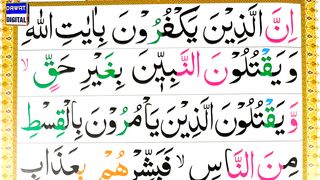 DAWAT
DIGITAL
اِنَّ الَّذِيْنَ يَكْفُرُوْنَ بِاٰيٰتِ اللّٰهِ
وَ يَقْتُلُوْنَ النَّبِيّٖنَ بِغَيْرِ حَقٍّ ۙ
وَّ يَقْتُلُوْنَ الَّذِيْنَ يَاْمُرُوْنَ بِالْقِسْطِ
مِنَ النَّاسِ ۙ فَبَشِّرْهُمْ بِعَذَابٍ